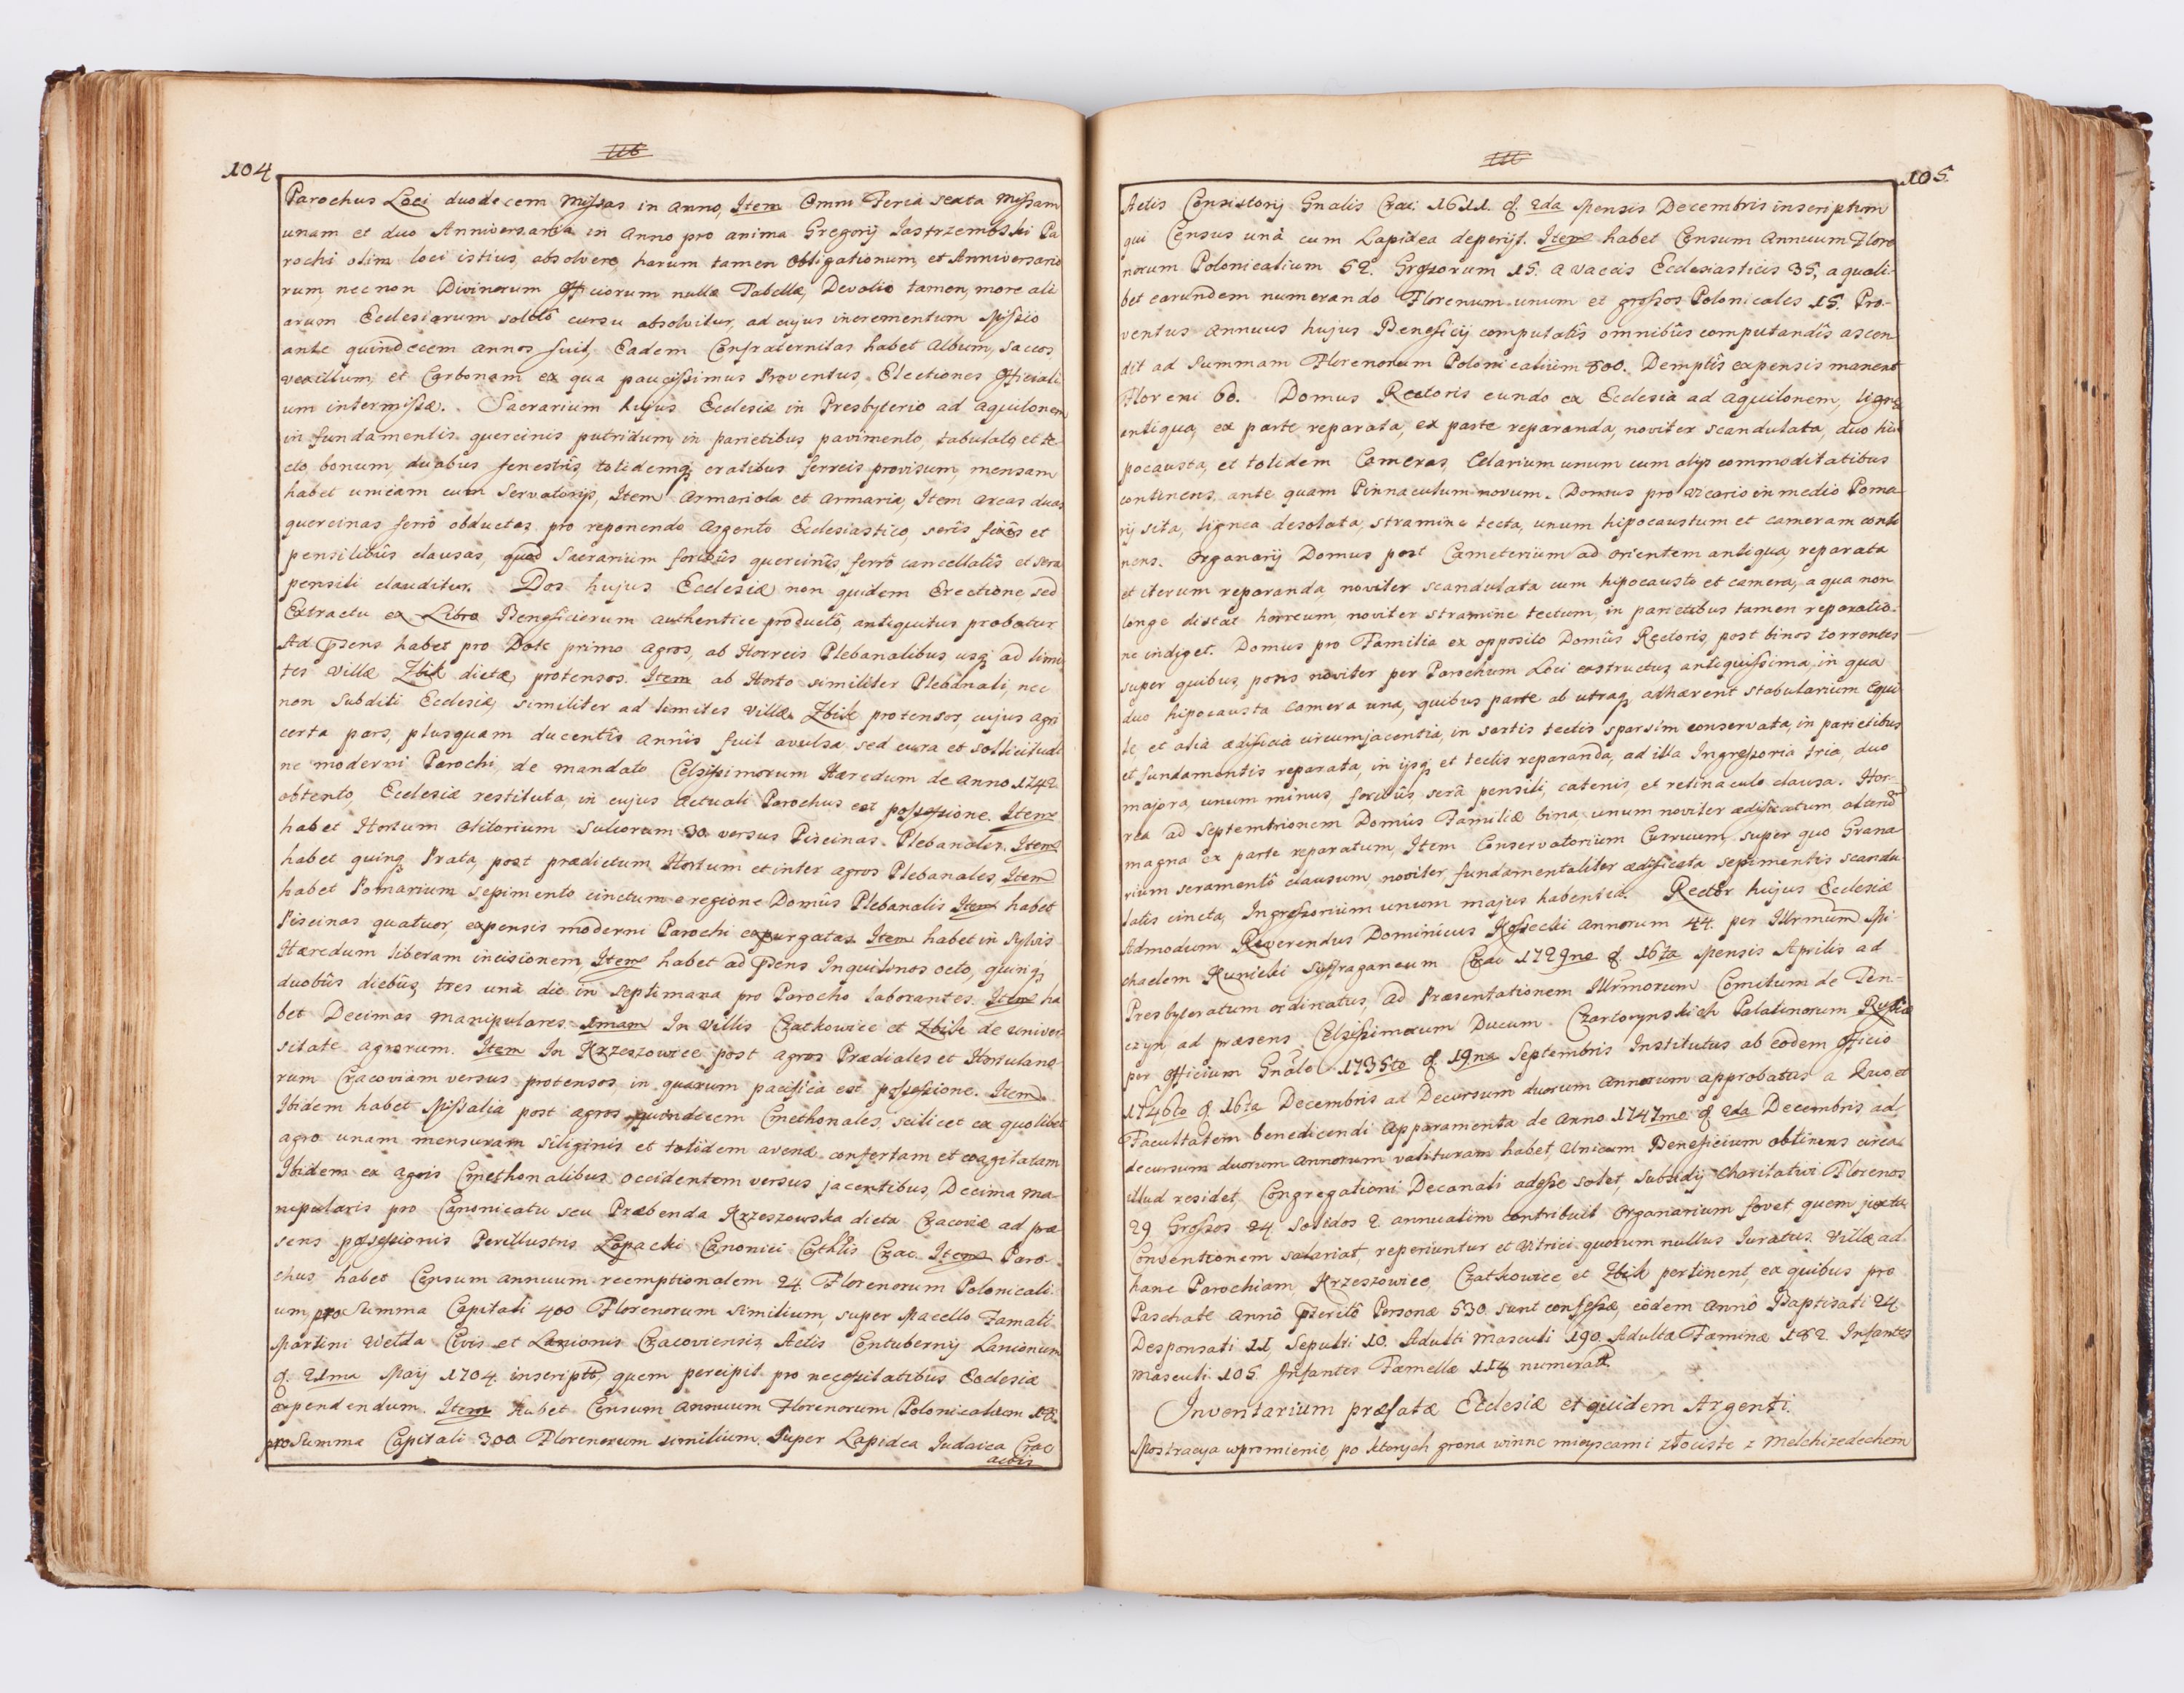 104
Parochus Loci duodecem Missas in Anno, Item Omni Feria sexta Missam
unam et duo Anniversaria in Anno pro anima Gregorij Jastrzembski Pa
rochi olim loci istius, absolvere, harum tamen Obligationum, et Anniversario
rum, nec non Divinorum Officiorum nullæ Tabellæ, Devotio tamen, more ali
arum Ecclesiarum solitô cursu absolvitur, ad cujus incrementum Missio
ante quindecem annos fuit, Eadem Confraternitas habet Album, saccos
vexillum, et Carbonam ex qua paucissimus Proventus, Electiones Officiali
um intermissæ. Sacrarium hujus Ecclesiæ in Presbyterio ad aquilonem
in fundamentis quercinis putridum, in parietibus, pavimento, tabulato et te-
cto, bonum, duabus fenestrîs, totidemq; cratibus ferreis provisum, mensam
habet unicam cum Servatorijs, Item Armariola et Armaria, Item Arcas duas
quercinas ferrô obductas pro reponendo Argento Ecclesiastico, serîs fixîs et
pensilibûs clausas, quod Sacrarium foribûs quercinîs, ferrô cancellatîs et sera
pensili clauditur. Dos hujus Ecclesiæ non quidem Erectione sed
Extractu ex Libro Beneficiorum authentice productô, antiquitus probatur
Ad Præsens habet pro Dote primo agros, ab Horreis Plebanalibus, usq; ad limi
tes Villæ Zbik dictæ, protensos. Item ab Horto similiter Plebanali, nec
non Subditi Ecclesiæ, similiter ad limites Villæ Zbik protensos, cujus agri
certa pars, plusquam ducentîs annîs fuit avulsa, sed cura et sollicitudi
ne moderni Parochi, de mandato Celsissimorum Hæredum de Anno 1742
obtento, Ecclesiæ restituta, in cujus Actuali Parochus est possessione. Item
habet Hortum Olitorium Sulcorum 30 versus Piscinas Plebanales, Item
habet quinq; Prata, post prædictum Hortum et inter agros Plebanales, Item
habet Pomarium sepimento cinctum e regione Domûs Plebanalis Item habet
Piscinas quatuor, expensis moderni Parochi expurgatas. Item habet in Sylvis
Hæredum liberam incisionem, Item habet ad Præsens Inquilinos octo, quinq;
duobûs diebûs, tres unâ die in Septimana pro Parocho laborantes. Item ha
bet Decimas manipulares 1mam In Villis Czatkowice et Zbik de univer
sitate agrorum. Item In Krzeszowice post agros Prædiales et Hortulano-
rum Cracoviam versus protensos, in quarum pacifica est possessione. Item
Ibidem habet Missalia post agros quindecem Cmethonales, scilicet ex quolibet
agro unam mensuram siliginis et totidem avenæ confertam et coagitatam
Ibidem ex agris Cmethonalibus Occidentem versus jacentibus, Decima ma-
nipularis pro Canonicatu seu Præbenda Krzeszowska dicta Cracoviæ ad præ
sens possessionis Perillustris Łopacki Canonici Cathlis Crac. Item Paro-
chus habet Censum annuum reemptionalem 24. Florenorum Polonicali-
um, pro Summa Capitali 400 Florenorum similium, super Macello Famati
Martini Welda Civis et Lanionis Cracoviensis, Actis Contubernij Lanionum
d. 21ma Maij 1704. inscripto, quem percipit pro necessitatibus Ecclesiæ
expendendum. Item Habet Censum Annuum Florenorum Polonicalium 18.
pro Summa Capitali 300 Florenorum similium. Super Lapidea Judaica Crac
actis
105.
Actis Consistorij Gnalis Crac: 1611. d. 2da Mensis Decembris inscriptum
qui Census unà cum Lapidea deperijt. Item habet Censum Annuum Flore
norum Polonicalium 52. Grossorum 15. a vaccis Ecclesiasticis 35, a quali-
bet earundem numerando Florenum unum et grossos Polonicales 15. Pro-
ventus annuus hujus Beneficij computatîs omnibûs computandîs ascen
dit ad Summam Florenorum Polonicalium 800. Demptîs expensis manent
Floreni 60. Domus Rectoris eundo ex Ecclesia ad Aquilonem, lignea
antiqua, ex parte reparata, ex parte reparanda, noviter scandulata, duo hi
pocausta, et totidem Cameras, Celarium unum cum alijs commoditatibus
continens, ante quam Pinnaculum novum. Domus pro Vicario in medio Poma-
rij sita, lignea desolata, stramine tecta, unum hipocaustum et cameram conti
nens. Organarij Domus post Cæmeterium ad orientem antiqua, reparata
et iterum reparanda, noviter scandulata cum hipocausto et camera, a qua non
longe distat horreum, noviter stramine tectum, in parietibus tamen reparatio-
ne indiget. Domus pro Familia ex opposito Domûs Rectoris, post binos torrentes
super quibus, pons noviter per Parochum Loci exstructus, antiquissima, in qua
duo hipocausta Camera una, quibus parte ab utraq; adhærent stabularium Equi-
le et alia ædificia circumjacentia, in sartis tectis sparsim conservata, in parietibus
et fundamentis reparata, in ipsq; et tectis reparanda, ad illa Ingressoria tria, duo
majora, unum minus, foribûs, serâ pensili, catenis, et retinaculo clausa. Hor-
rea ad Septemtrionem Domûs Familiæ bina, unum noviter ædificatum, alterũ
magna ex parte reparatum, Item Conservatorium Curruum, super quo Grana-
rium seramentô clausum, noviter fundamentaliter ædificata sepimentis scandu-
latis cincta, Ingressorium unum majus habentia. Rector hujus Ecclesiæ
Admodum Reverendus Dominicus Kossecki Annorum 44. per Illrmum Mi-
chaelem Kunicki Suffraganeum Crac 1729no d. 16ta Mensis Aprilis ad
Presbyteratum ordinatus, ad Præsentationem Illrmorum Comitum de Ten-
czyn ad præsens Celsissimorum Ducum Czartorynskich Palatinorum Russiæ
per Officium Gnâle 1735to d. 19na Septembris Institutus ab eodem Officio
1746to d. 16ta Decembris ad Decursum duorum Annorum approbatus a Quo, et
Facultatem benedicendi Apparamenta de Anno 1747mo d. 2da Decembris, ad
decursum duorum annorum valituram habet, Unicum Beneficium obtinens circa
illud residet, Congregationi Decanali adesse solet, Subsidij Charitativi Florenos
29 Grossos 24 solidos 2 annuatim contribuit Organarium fovet, quem juxta
Conventionem salariat, reperiuntur et Vitrici quorum nullus Juratus. Villæ ad
hanc Parochiam Krzeszowice, Czatkowice et Zbik pertinent, ex quibus pro
Paschate annô Præteritô Personæ 530. sunt confessæ, eôdem Annô Baptisati 24
Desponsati 11, Sepulti 10. Adulti masculi 190. Adultæ Fæminæ 182. Infantes
masculi 105. Infantes Fæmellæ 114 numerati.
Inventarium præfatæ Ecclesiæ et quidem Argenti.
Mostracya w promienie, po ktorych grona winne mieyscami złociste z Melchizedechem